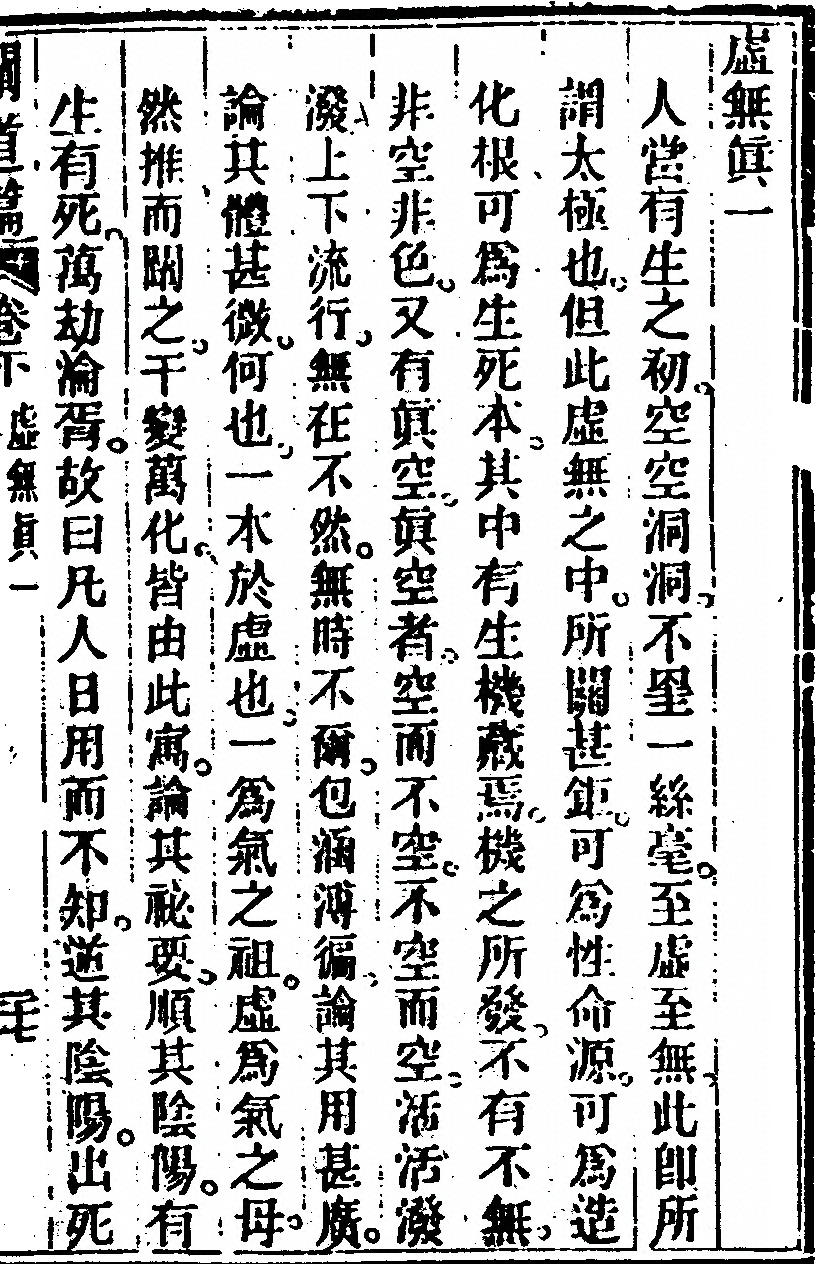 虛無眞一
人當有生之初空空洞洞不罣一絲毫至虛至無此卽所
謂太極也但此虛無之中所關甚鉅可爲性命源可爲造
化根可爲生死本其中有生機藏焉機之所發不有不無
非空非色又有眞空眞空者空而不空不空而空活活潑
潑上下流行無在不然無時不爾包涵溥徧論其用甚廣
論其體甚微何也一本於虛也一爲氣之祖虛爲氣之母
然推而闊之千變萬化皆由此寓論其祕要順其陰陽有
生有死萬劫淪胥故曰凡人日用而不知逆其陰陽出死
道篇 卷下 虛無眞一